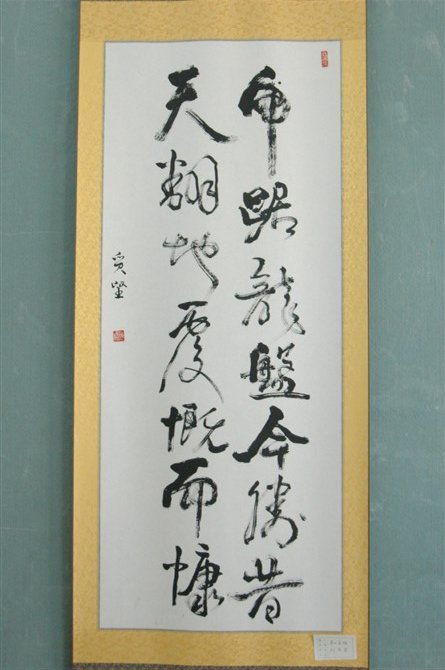 虎踞龍盤今勝昔
天翻地覆慨而慷